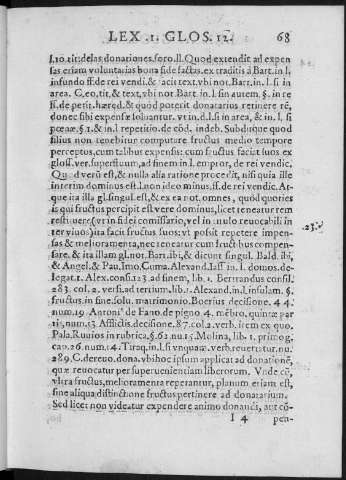 LEX .1. GLOS. 12. 68
l.10.tit: delas donationes.foro.ll. Quod extendit ad expen
sas etiam voluntarias bona fide factas.ex traditis á Bart.in l.
infundo ff.de rei vendi.& facit text.vbi not.Bart.in.l.si in
area. C.eo.tit,& text,vbi not Bart.in l.sin autem.§. in re
ff.de petit.hæred.& quód poterit donatarius retinere rē,
donec sibi expensæ soluantur. vt in.d.l.si in area, & in. l. si
& in l.repetitio.de cōd. indeb. Subdúque quod
filius non tenebitur computare fructus medio tempore
perceptos, cum talibus expensis: cum fructus faciat suos ex
gloss.ver.superfluum, ad finem in l.emptor, de rei vendic.
Quod verū est, & nulla alia ratione procedit, nisi quia ille
interim dominus est.l.non ideo minus.ff.de rei vendic. At-
que ita illa gl.singul.est,& ex ea not.omnes, quód quoties
is qui fructus percipit est vere dominus, licet teneatur rem
restituere(vt in fidei comissario, vel in titulo reuocabili in
ter viuos)ita facit fructus suos: vt possit repetere impen-
sas & melioramenta,nec teneatur cum fructibus compen-
sare. & ita illam gl.not.Bart.ibi,& dicunt singul. Bald. ibi,
& Angel.& Pau,Imo.Cuma.Alexand.Iaff in.l. domos.de-
legat.1. Alex.consi.123.ad finem, lib. 1. Bertrandus consil.
283. col.2. versi.ad tertium,lib.1.Alexand.in.l.insulam. §.
fructus.in fine.solu. matrimonio. Boerius decisione. 44.
num.19 Antoni⁹ de Fano de pigno.4. mēbro, quintæ par
tis,num.13 Afflictis.decisione.87.col.2.verb.item ex quo.
Pala.Ruuios in rubrica,§.62.nu.15.Molina, lib 1. primog.
cap.26.num.14. Tiraq.in.l.si vnquam.verb.reuertatur.nu.
289.C.de reuo.dona.vbi hoc ipsum applicat ad donationē,
quæ reuocatur per superuenientiam liberorum. Vnde cū,
vltra fructus, melioramenta reperantur, planum etiam est,
sine aliqua distinctione fructus pertinere ad donatarium.
Sed licet non videatur expendere animo donandi, aut cō-
23.
I 4 pen-